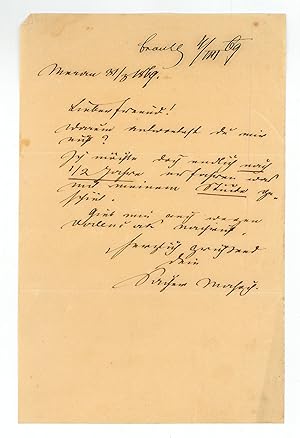 Meran 31/8 1869.
Lieber Freund!
Warum antwortest du mir
nicht?
Ich möchte doch endlich nach
1/2 Jahre erfahren was
mit meinem Stücke ge-
schieht.
Gieb mir auch wegen
als
Herzlich grüssend
dein
Sacher Masoch.